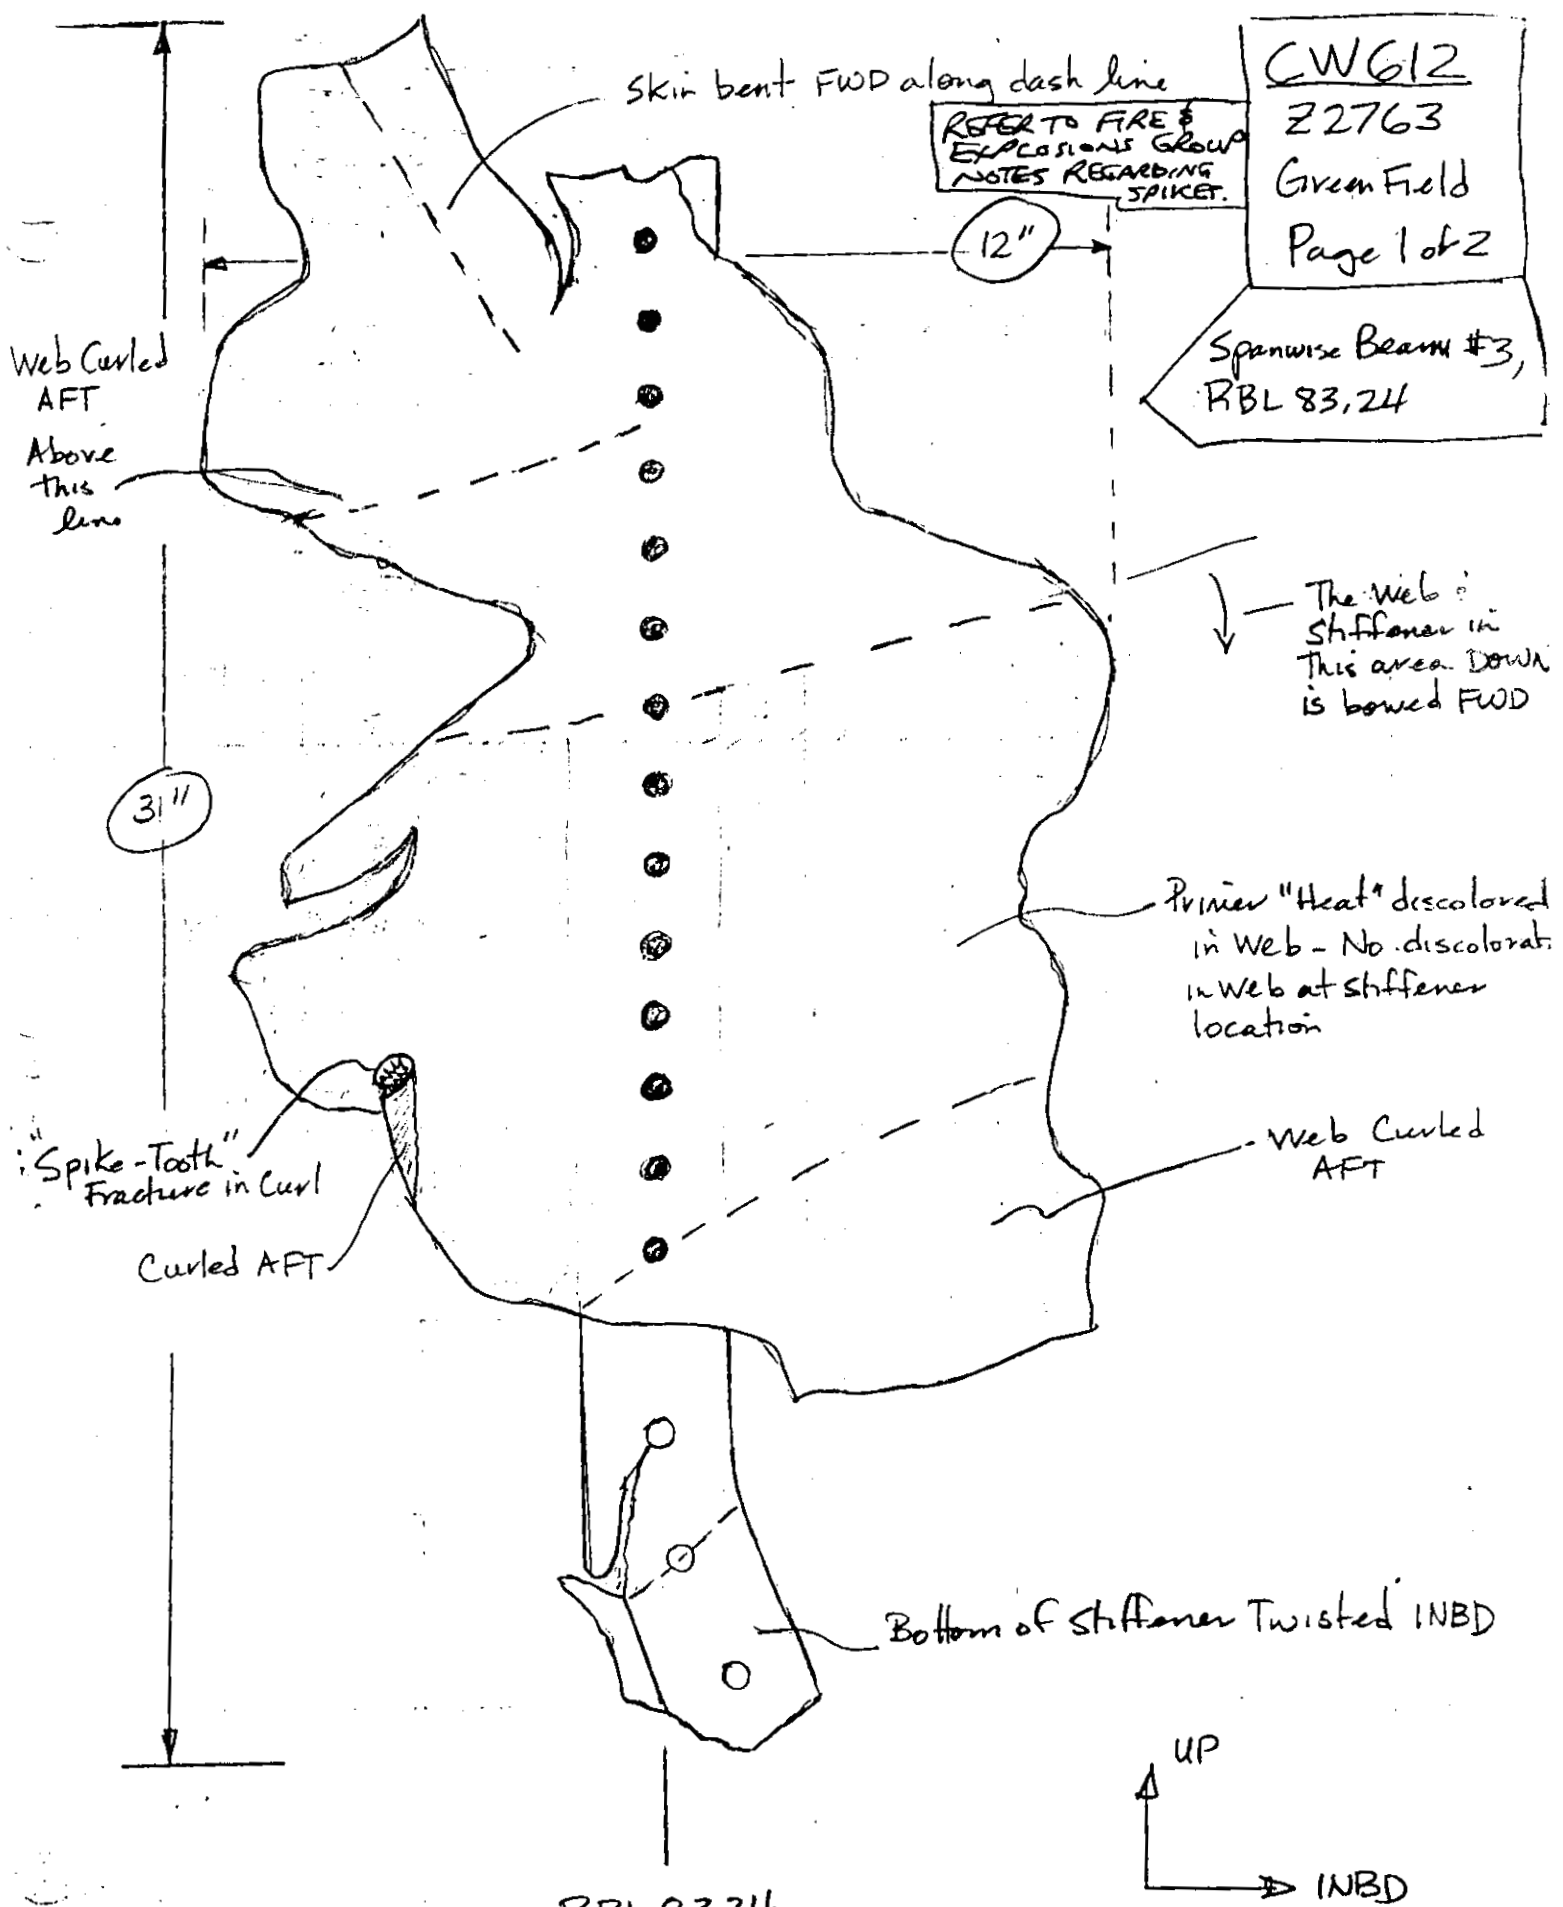 Skin bent FWD along dash line
REFER TO FIRE &
EXPLOSIONS GROUP
NOTES REGARDING
SPIKET.
CW612
Z2763
Green Field
Page 1 of 2
Spanwise Beam #3,
RBL 83.24
12"
Web Curled
AFT
Above
this
line
The Web &
Stiffener in
This area DOWN
is bowed FWD
31"
Primer "Heat" discolored
in Web - No discolorat
in Web at stiffener
location
"Spike-Tooth"
Fracture in Curl
Curled AFT
Web Curled
AFT
Bottom of Stiffener Twisted INBD
UP
INBD
RBL 83.24